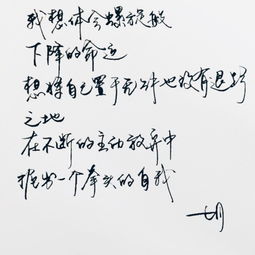 我想体会螺旋般
下降的命运
想将自己置于无功也没有退路
之地
在不断的主动放弃中
挖出一个拳头的自我